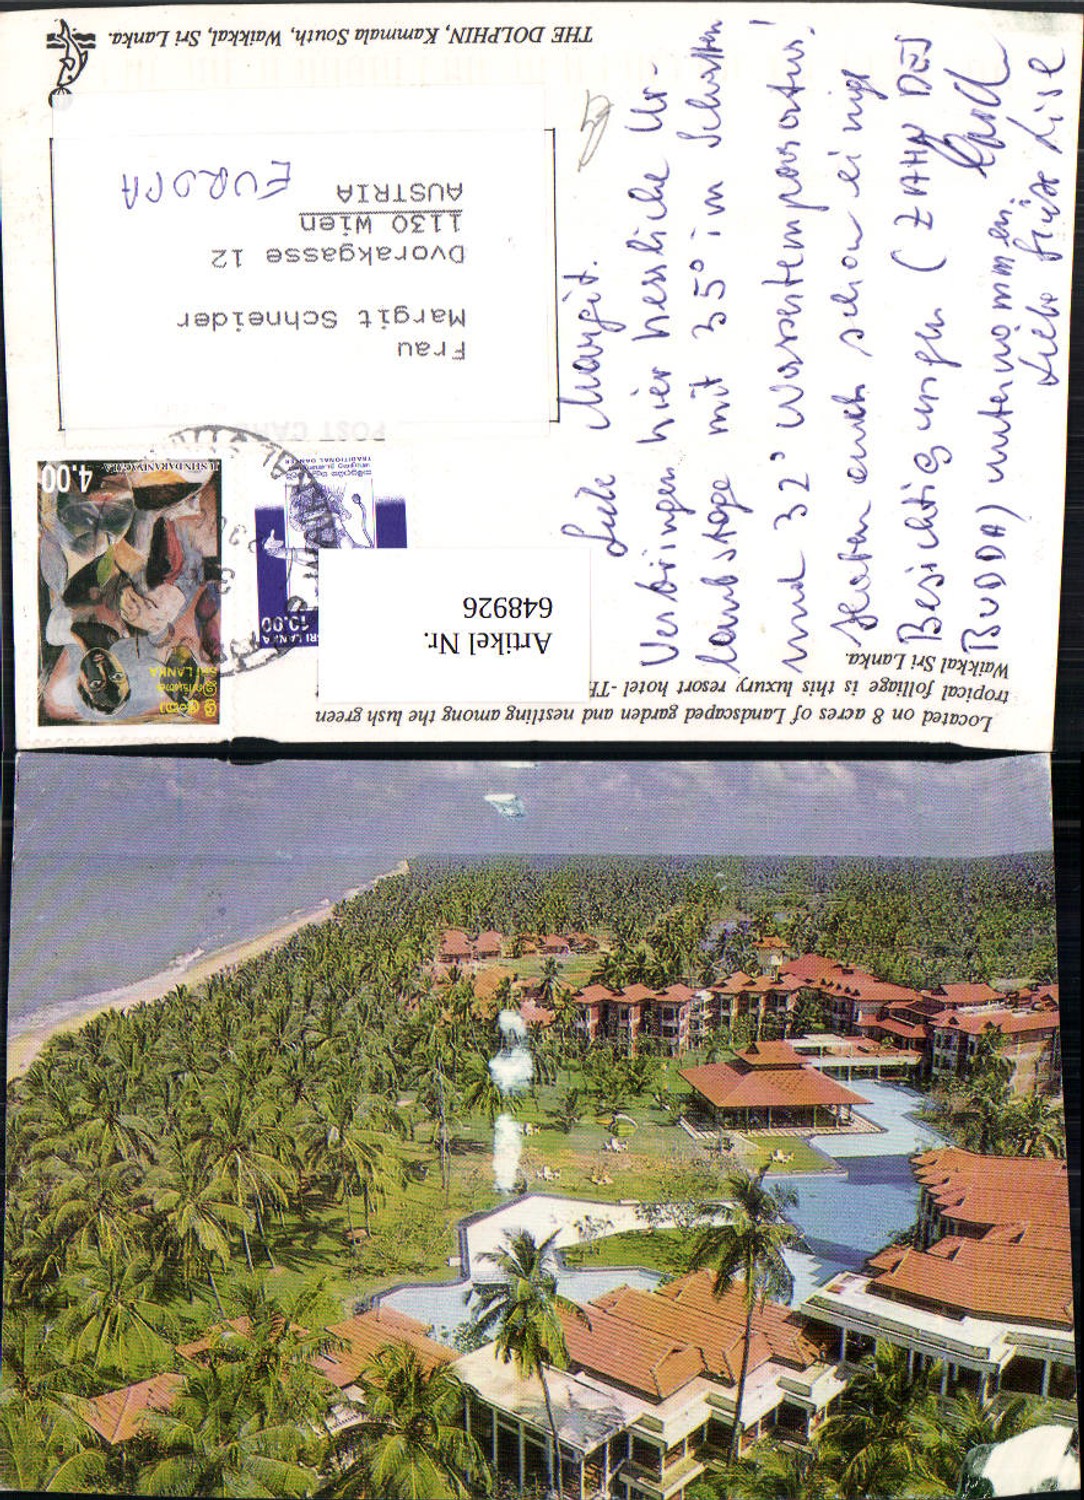 THE DOLPHIN, Kammala South, Waikkal, Sri Lanka.
EUROPA
Frau
Margit Schneider
Dvorakgasse 12
1130 Wien
AUSTRIA
POST CARD
4.00
SRI LANKA
SRI LANKA
10.00
TRADITIONAL DANCER
Artikel Nr.
648926
Liebe Margit.
Verbringen hier herrliche Ur-
laubstage mit 35° im Schatten
und 32° Wassertemperatur!
Haben auch schon einige
Besichtigungen (ZAHN DES
BUDDA) unternommen.
Liebe Grüße Lise
Located on 8 acres of Landscaped garden and nestling among the lush green
tropical folliage is this luxury resort hotel -TH
Waikkal Sri Lanka.